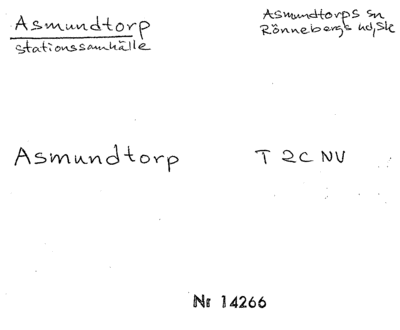 Asmundtorp
stationssamhälle
Asmundtorps sn
Rönnebergs hd, Sk
Asmundtorp
T 2C NV
Nr 14266